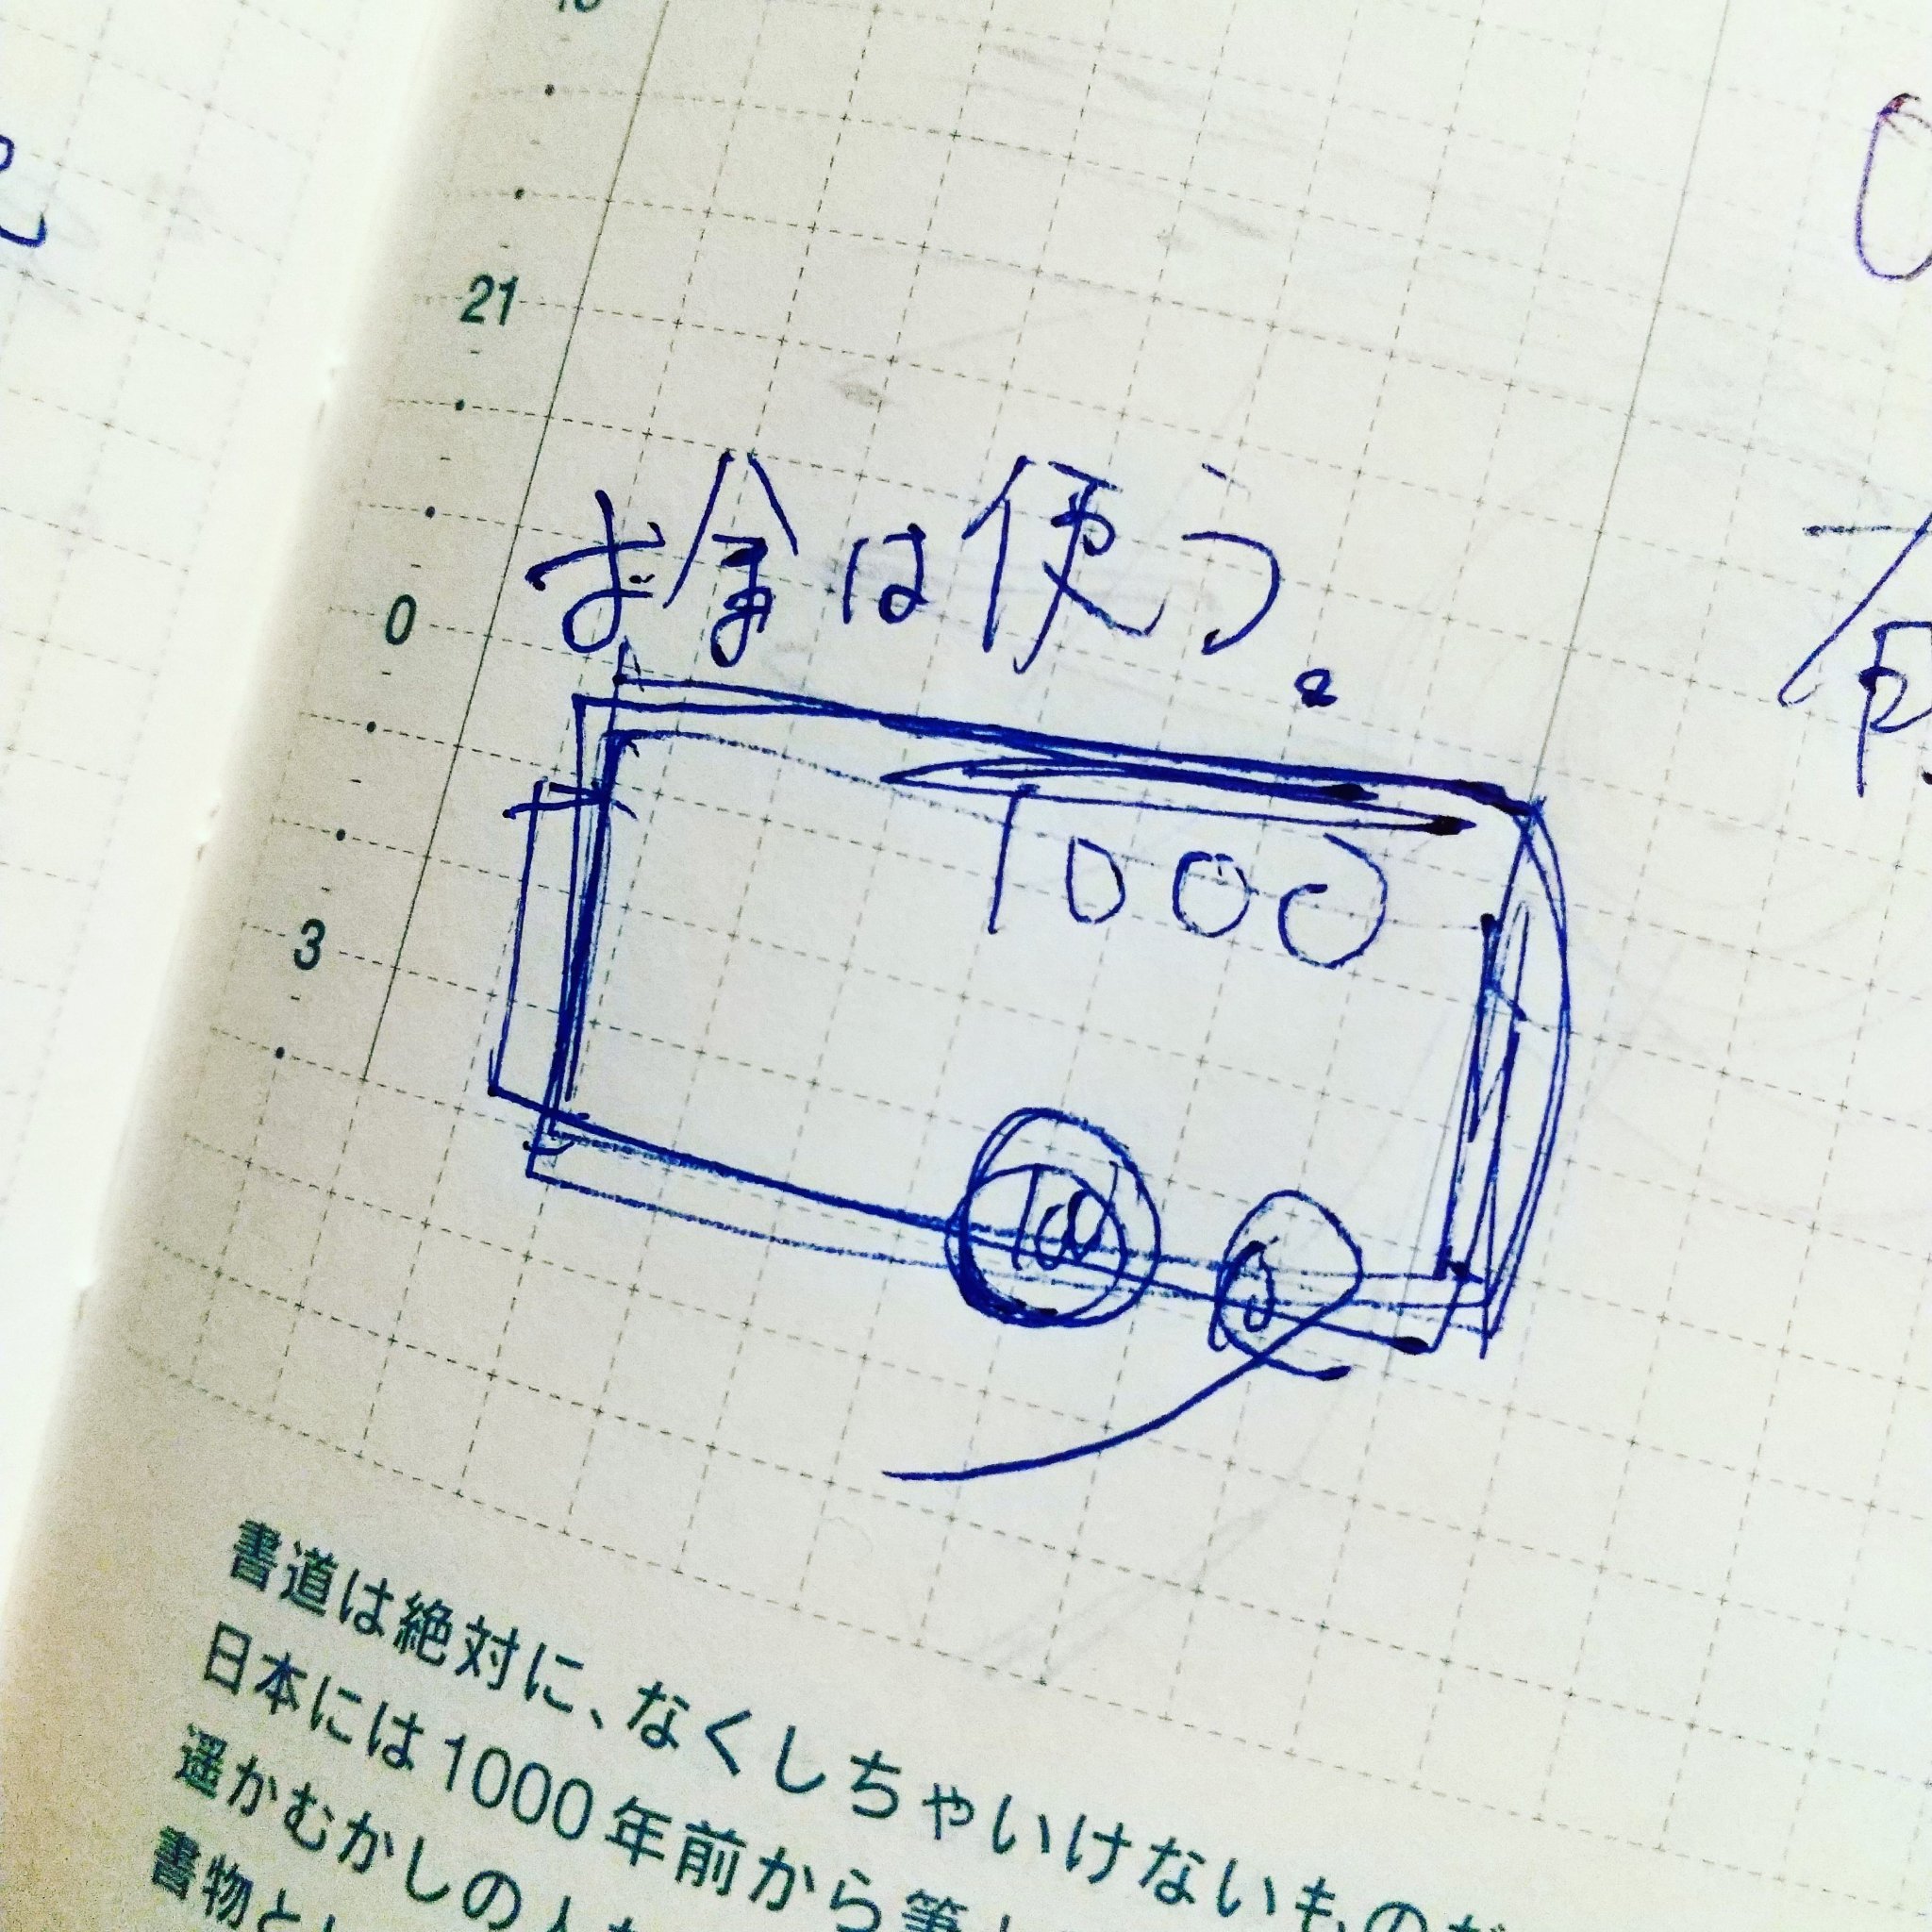 21
お金は使う。
0
1000
3
100
書道は絶対に、なくしちゃいけないものだ
日本には1000年前から筆
遥かむかしの人
書物と